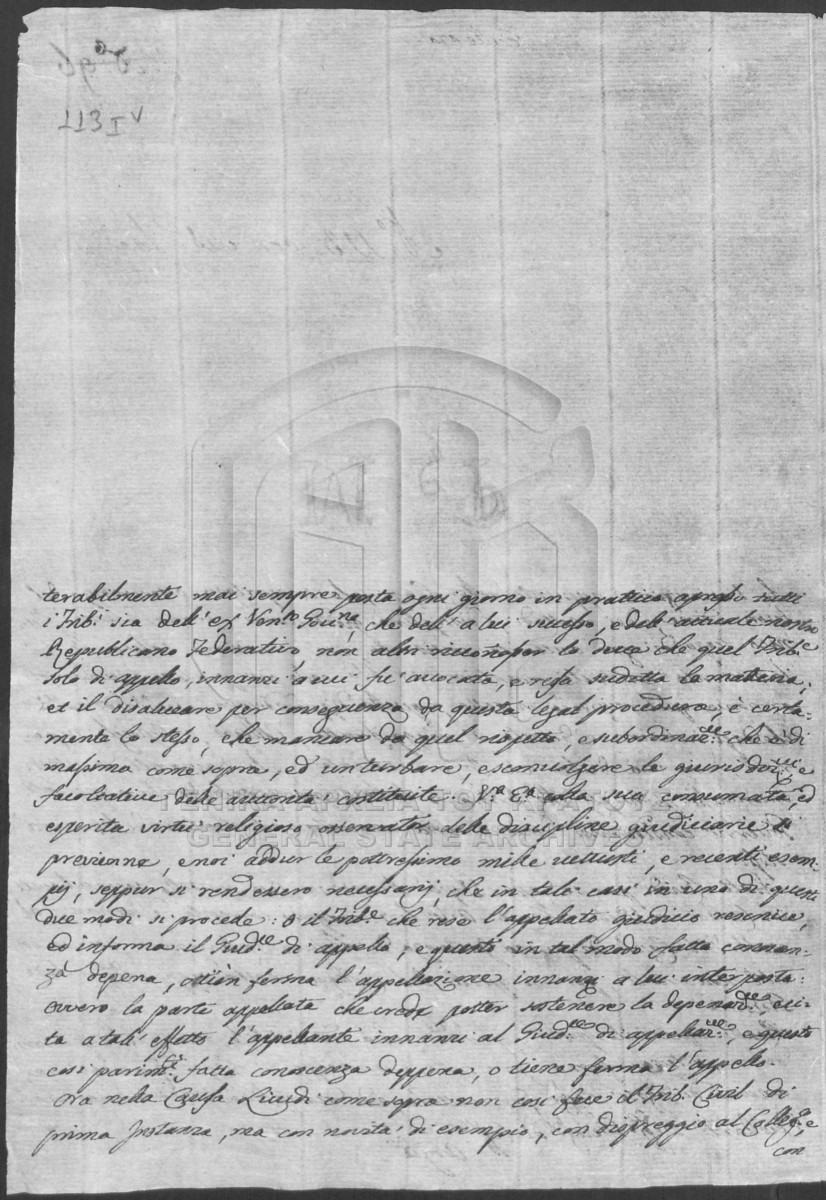 113 I v
terabilmente mai sempre posta ogni giorno in prattica apresso tutti
i Trib.i sia dell' ex Ven.to Gov.na, che dell' a lui sucesso, e dell' attuale nostro
Republicano Federativo, non altri riccon per lo decà che quel Trib.e
solo di appello, innanzi a cui fù avocata, e resa sudetta la materia;
et il disalucare per conseguenza da questa legal procedura, è certa-
mente lo stesso, che mancare da quel rispetto, e subordinaz.ne che è di
massima come sopra, ed un turbare, e sconvolgere le giurisdiz.ni e
facoltative delle auttorità costituite. V.ra E.za colla sua consumata, ed
esperita virtù religioso osservator delle discipline giudiciarie
previenna, e noi addur le pottressimo mille vettusti, e recenti esem-
pij, seppur si rendessero necessarij, che in tali casi in uno di questi
due modi si procede: o il Trib.e che rese l'appellato giudicio
ed informa il Giud.ce di appello, e questi in tal modo fatta connan-
za depena, o tien ferma l'appellazione innanzi a lui interposta:
ovvero la parte appellata che crede potter sostenere la depenaz.ne, ci-
ta a tali effetto l'appellante innanzi al Giud.ce di appellaz.ne, e questo
così parim.te fatta conoscenza deppena, o tiene ferma l'appello.
Ora nella Causa Licudi come sopra non così fece il Trib. Civil di
prima Instanza, ma con novità di esempio, con dispreggio al Colleg.o e
con
TENIKA APXEIA TOY KPATOYΣ
GENERAL STATE ARCHIVES